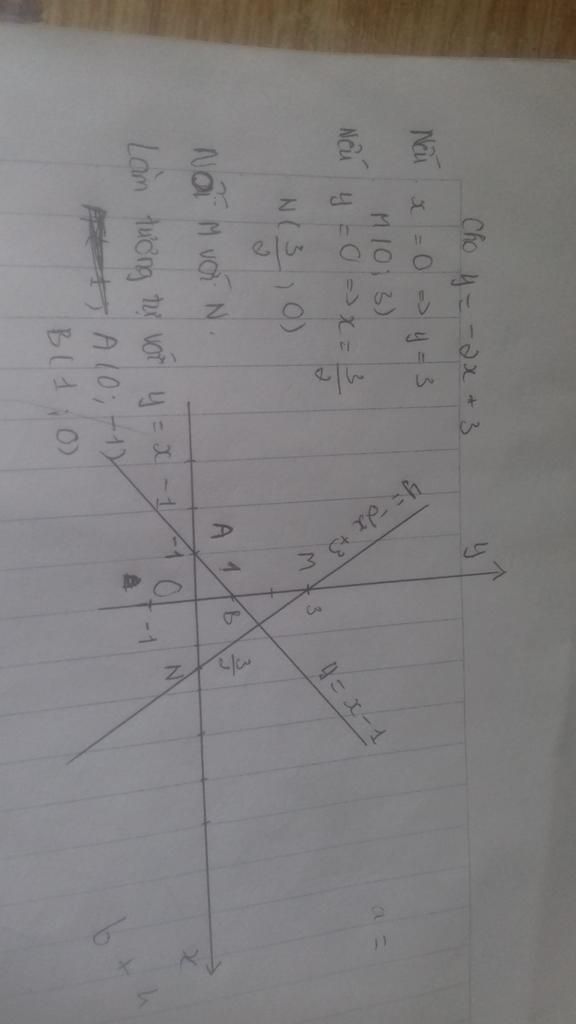 Cho y = -2x + 3
Nếu x = 0 => y = 3
M(0; 3)
Nếu y = 0 => x = 3/2
N(3/2; 0)
Nối M với N.
Làm tương tự với y = x - 1
A(0; -1)
B(1; 0)
y
y = -2x + 3
M
3
y = x - 1
A
1
B
3/2
-1
O
N
x
-1
a =